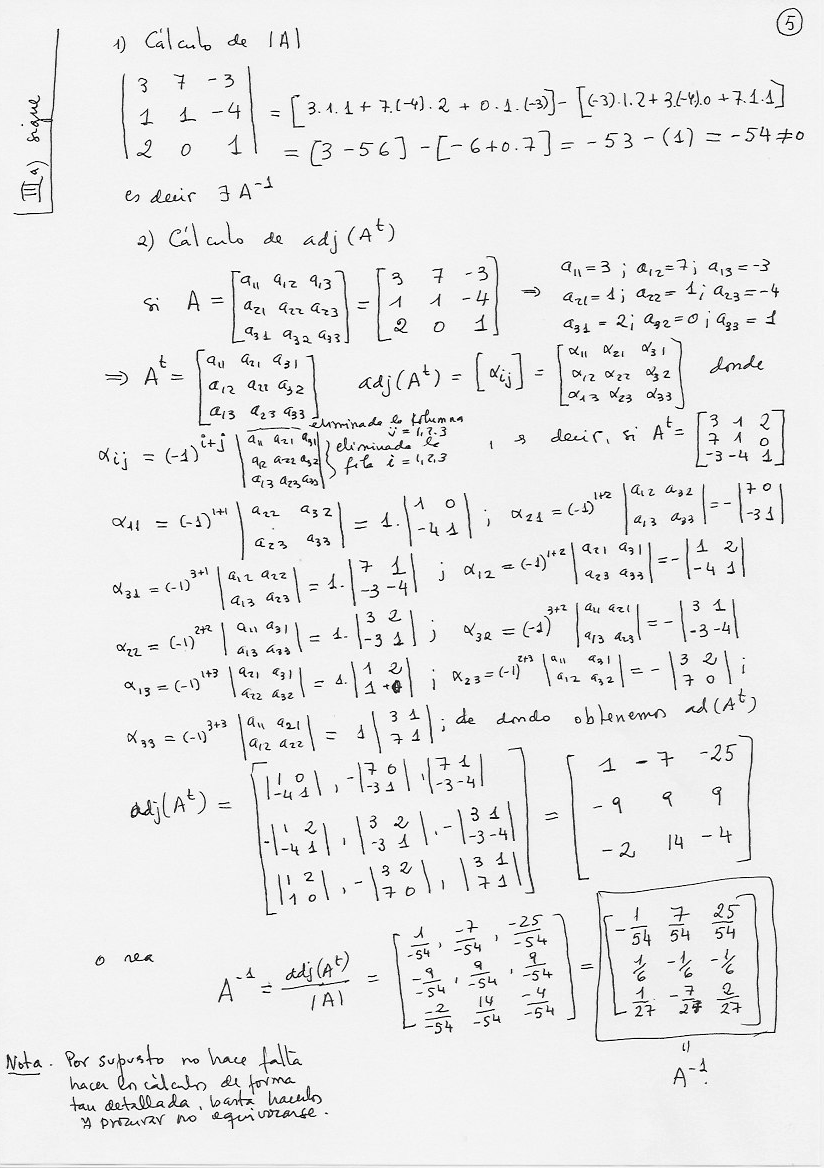 5
III a) sigue
1) Cálculo de |A|
| 3 7 -3 |
| 1 1 -4 | = [3.1.1 + 7.(-4).2 + 0.1.(-3)] - [(-3).1.2 + 3.(-4).0 + 7.1.1]
| 2 0 1 | = [3 - 56] - [-6+0.7] = -53 - (1) = -54 ≠ 0
es decir ∃ A⁻¹
2) Cálculo de adj(Aᵗ)
si A = [a11 a12 a13; a21 a22 a23; a31 a32 a33] = [3 7 -3; 1 1 -4; 2 0 1] ⇒ a11=3; a12=7; a13=-3
a21=1; a22=1; a23=-4
a31=2; a32=0; a33=1
⇒ Aᵗ = [a11 a21 a31; a12 a22 a32; a13 a23 a33] adj(Aᵗ) = [αij] = [α11 α21 α31; α12 α22 α32; α13 α23 α33] donde
αij = (-1)^(i+j) |a11 a21 a31; a12 a22 a32; a13 a23 a33| eliminada la kolumna j=1,2,3 eliminada la fila i=1,2,3, es decir, si Aᵗ = [3 1 2; 7 1 0; -3 -4 1]
α11 = (-1)^(1+1) |a22 a32; a23 a33| = 1.|1 0; -4 1|; α21 = (-1)^(1+2) |a12 a32; a13 a33| = -|7 0; -3 1|
α31 = (-1)^(3+1) |a12 a22; a13 a23| = 1.|7 1; -3 -4|; α12 = (-1)^(1+2) |a21 a31; a23 a33| = -|1 2; -4 1|
α22 = (-1)^(2+2) |a11 a31; a13 a33| = 1.|3 2; -3 1|; α32 = (-1)^(3+2) |a11 a21; a13 a23| = -|3 1; -3 -4|
α13 = (-1)^(1+3) |a21 a31; a22 a32| = 1.|1 2; 1 0|; α23 = (-1)^(2+3) |a11 a31; a12 a32| = -|3 2; 7 0|;
α33 = (-1)^(3+3) |a11 a21; a12 a22| = 1|3 1; 7 1|; de dondo obtenemos ad(Aᵗ)
adj(Aᵗ) = [|1 0; -4 1|, -|7 0; -3 1|, |7 1; -3 -4|; -|1 2; -4 1|, |3 2; -3 1|, -|3 1; -3 -4|; |1 2; 1 0|, -|3 2; 7 0|, |3 1; 7 1|] = [1 -7 -25; -9 9 9; -2 14 -4]
o sea A⁻¹ = adj(Aᵗ)/|A| = [1/-54, -7/-54, -25/-54; -9/-54, 9/-54, 9/-54; -2/-54 14/-54 -4/-54] = [-1/54 7/54 25/54; 1/6 -1/6 -1/6; 1/27 -7/27 2/27]
A⁻¹.
Nota. Por supusto no hace falta
hacer los cálculos de forma
tan detallada, basta hacerlos
y procurar no equivocarse.